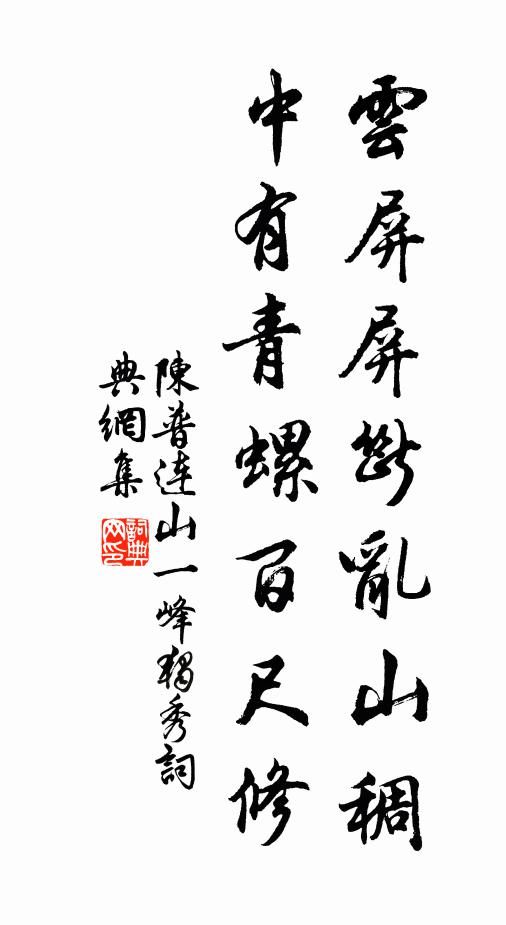 雲屏屏斷亂山稠
中有青螺百尺修
陳普連山一峰獨秀詞
典網集
詞典网印